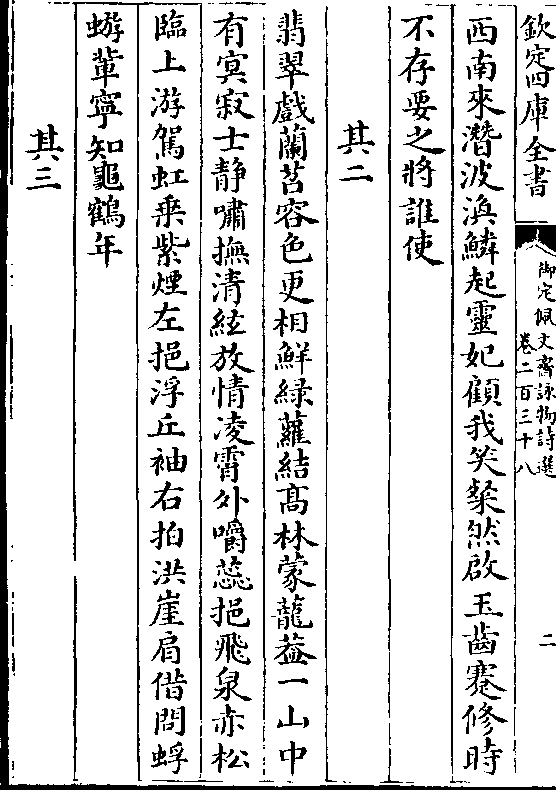 欽定四庫全書
御定佩文齋詠物詩選
卷二百三十八
二
西南來潛波渙鱗起靈妃顧我笑粲然啟玉齒蹇修時
不存要之將誰使
其二
翡翠戲蘭苕容色更相鮮緑蘿結髙林蒙蘢葢一山中
有㝠寂士静嘯撫清絃放情凌霄外嚼蕊挹飛泉赤松
臨上游駕虹乗紫煙左挹浮丘袖右拍洪崖肩借問蜉
蝣輩寧知龜鶴年
其三